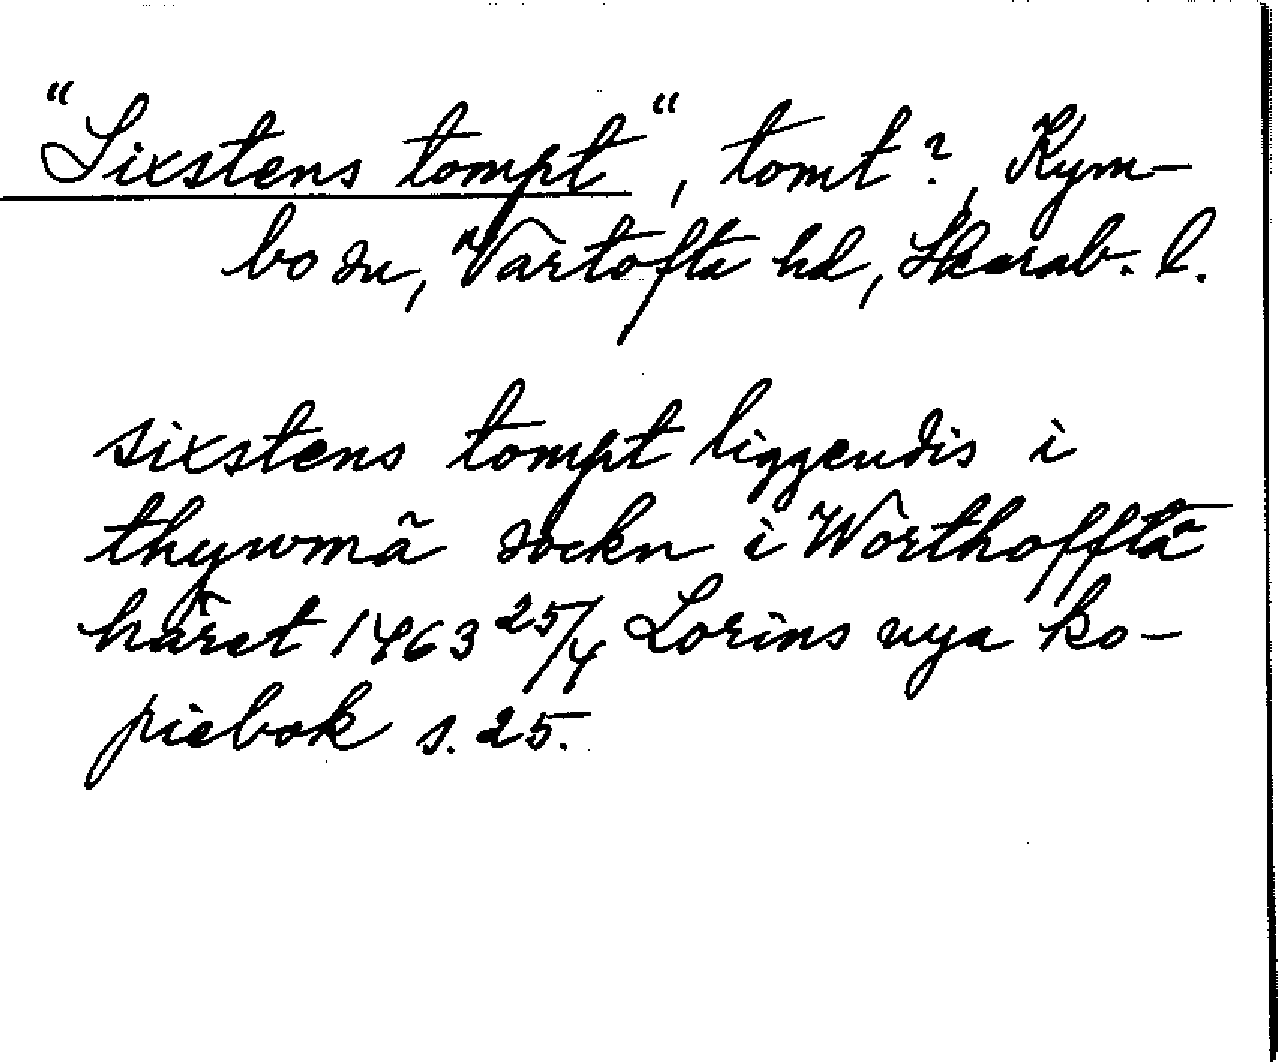 "Sixstens tompt", tomt?, Kym-
bo sn, Vartofta hd, Skarab. l.
sixstens tompt liggendis i
thywmä sockn i Wörthofftä
häret 1463 25/4 Lorins nya ko-
piebok s. 25.